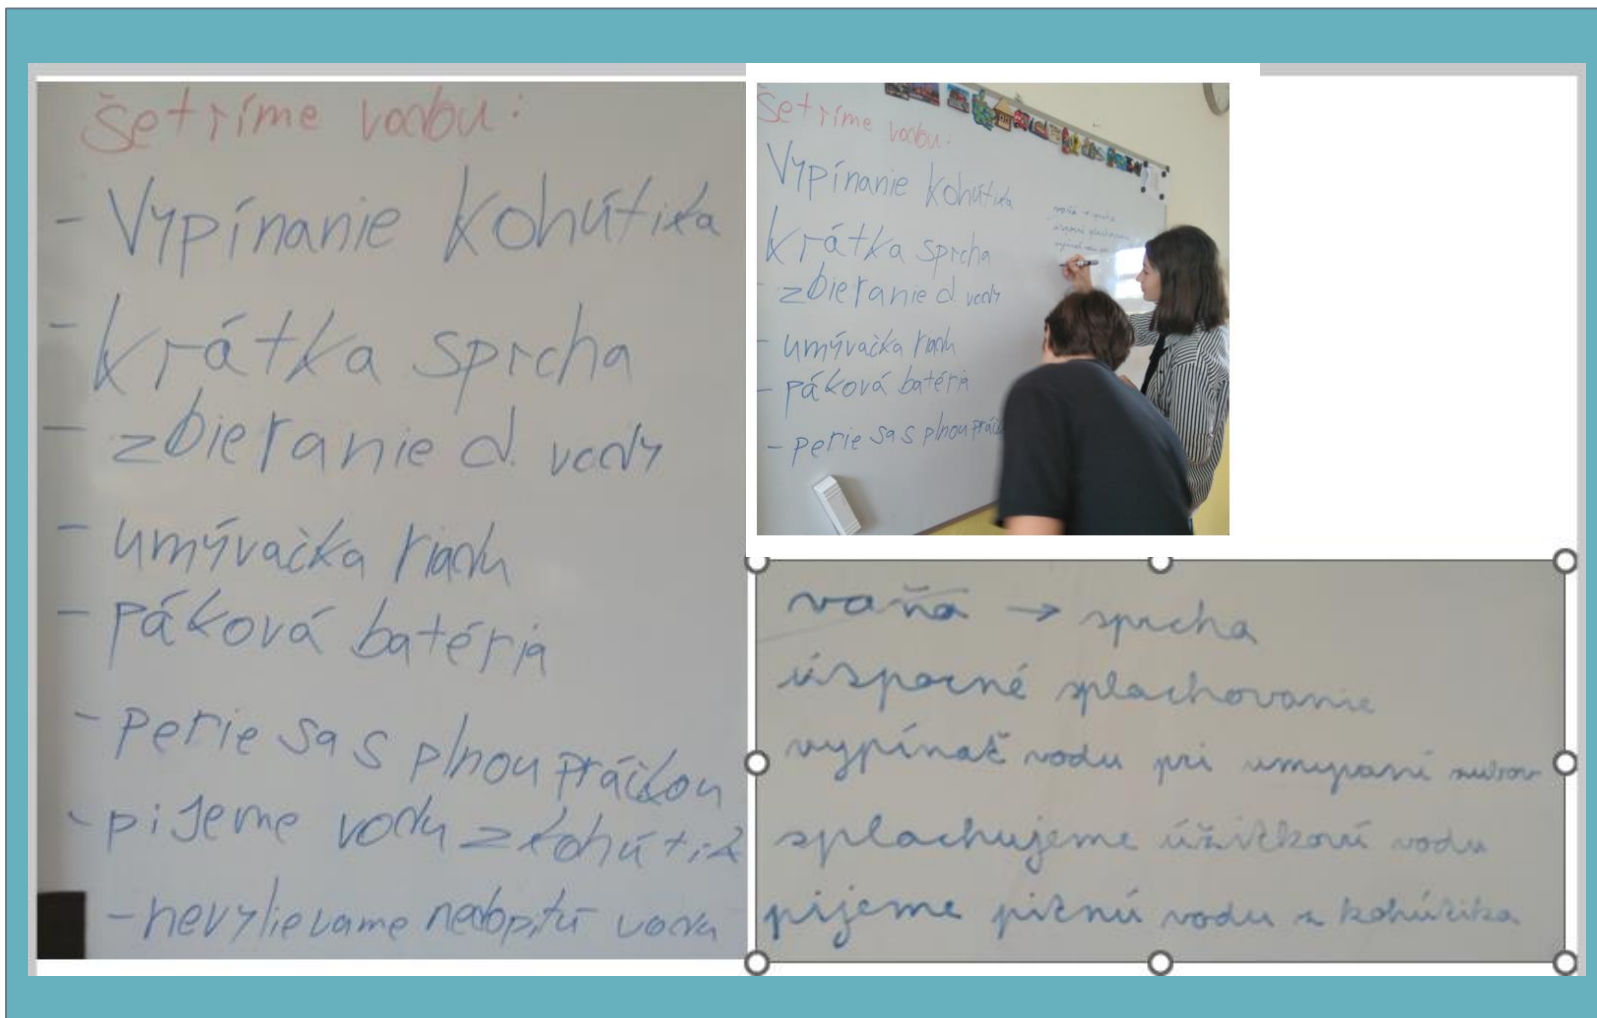 Šetríme vodu:
- Vypínanie kohútika
- krátka sprcha
- zbieranie d. vody
- umývačka riadu
- páková batéria
- perie sa s plnou práčkou
- pijeme vodu z kohútik
- nevylievame nedopitú vodu
Šetríme vodu:
Vypínanie kohútika
krátka sprcha
- zbieranie d. vody
- umývačka riadu
- páková batéria
- perie sa s plnou práč
vaňa → sprcha
úsporné splachovanie
vaňa → sprcha
úsporné splachovanie
vypínač vodu pri umývaní zubov
splachujeme úžitkovú vodu
pijeme pitnú vodu z kohútika